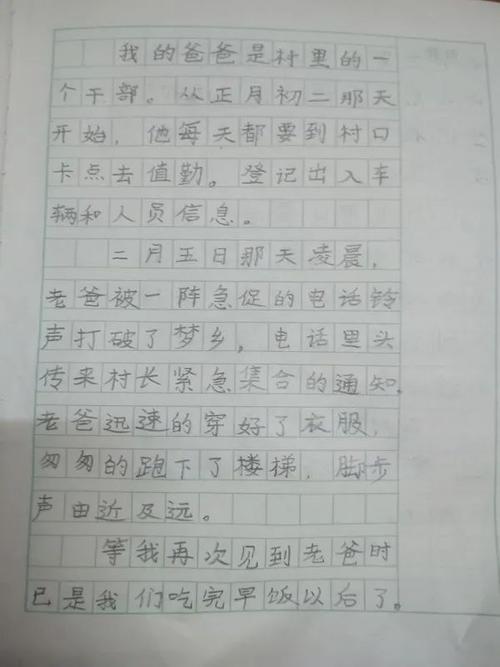 我的爸爸是村里的一
个干部。从正月初二那天
开始，他每天都要到村口
卡点去值勤。登记出入车
辆和人员信息。
二月五日那天凌晨，
老爸被一阵急促的电话铃
声打破了梦乡，电话里头
传来村长紧急集合的通知，
老爸迅速的穿好了衣服，
匆匆的跑下了楼梯，脚步
声由近及远。
等我再次见到老爸时
已是我们吃完早饭以后了。